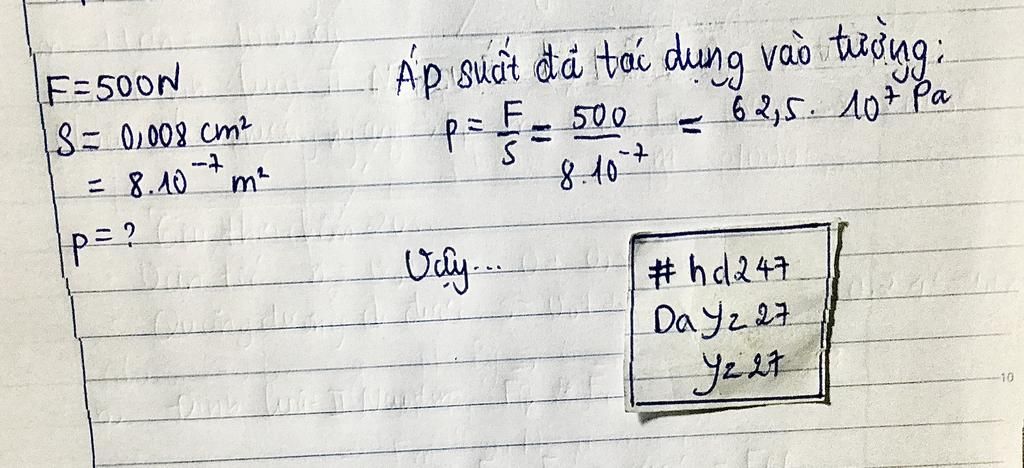 F=500N
S= 0,008 cm²
= 8.10⁻⁷ m²
p=?
Áp suất đã tác dụng vào tường:
p= F/S = 500/8.10⁻⁷ = 62,5. 10⁷ Pa
Vậy...
#hd247
Dayz27
yz27
10